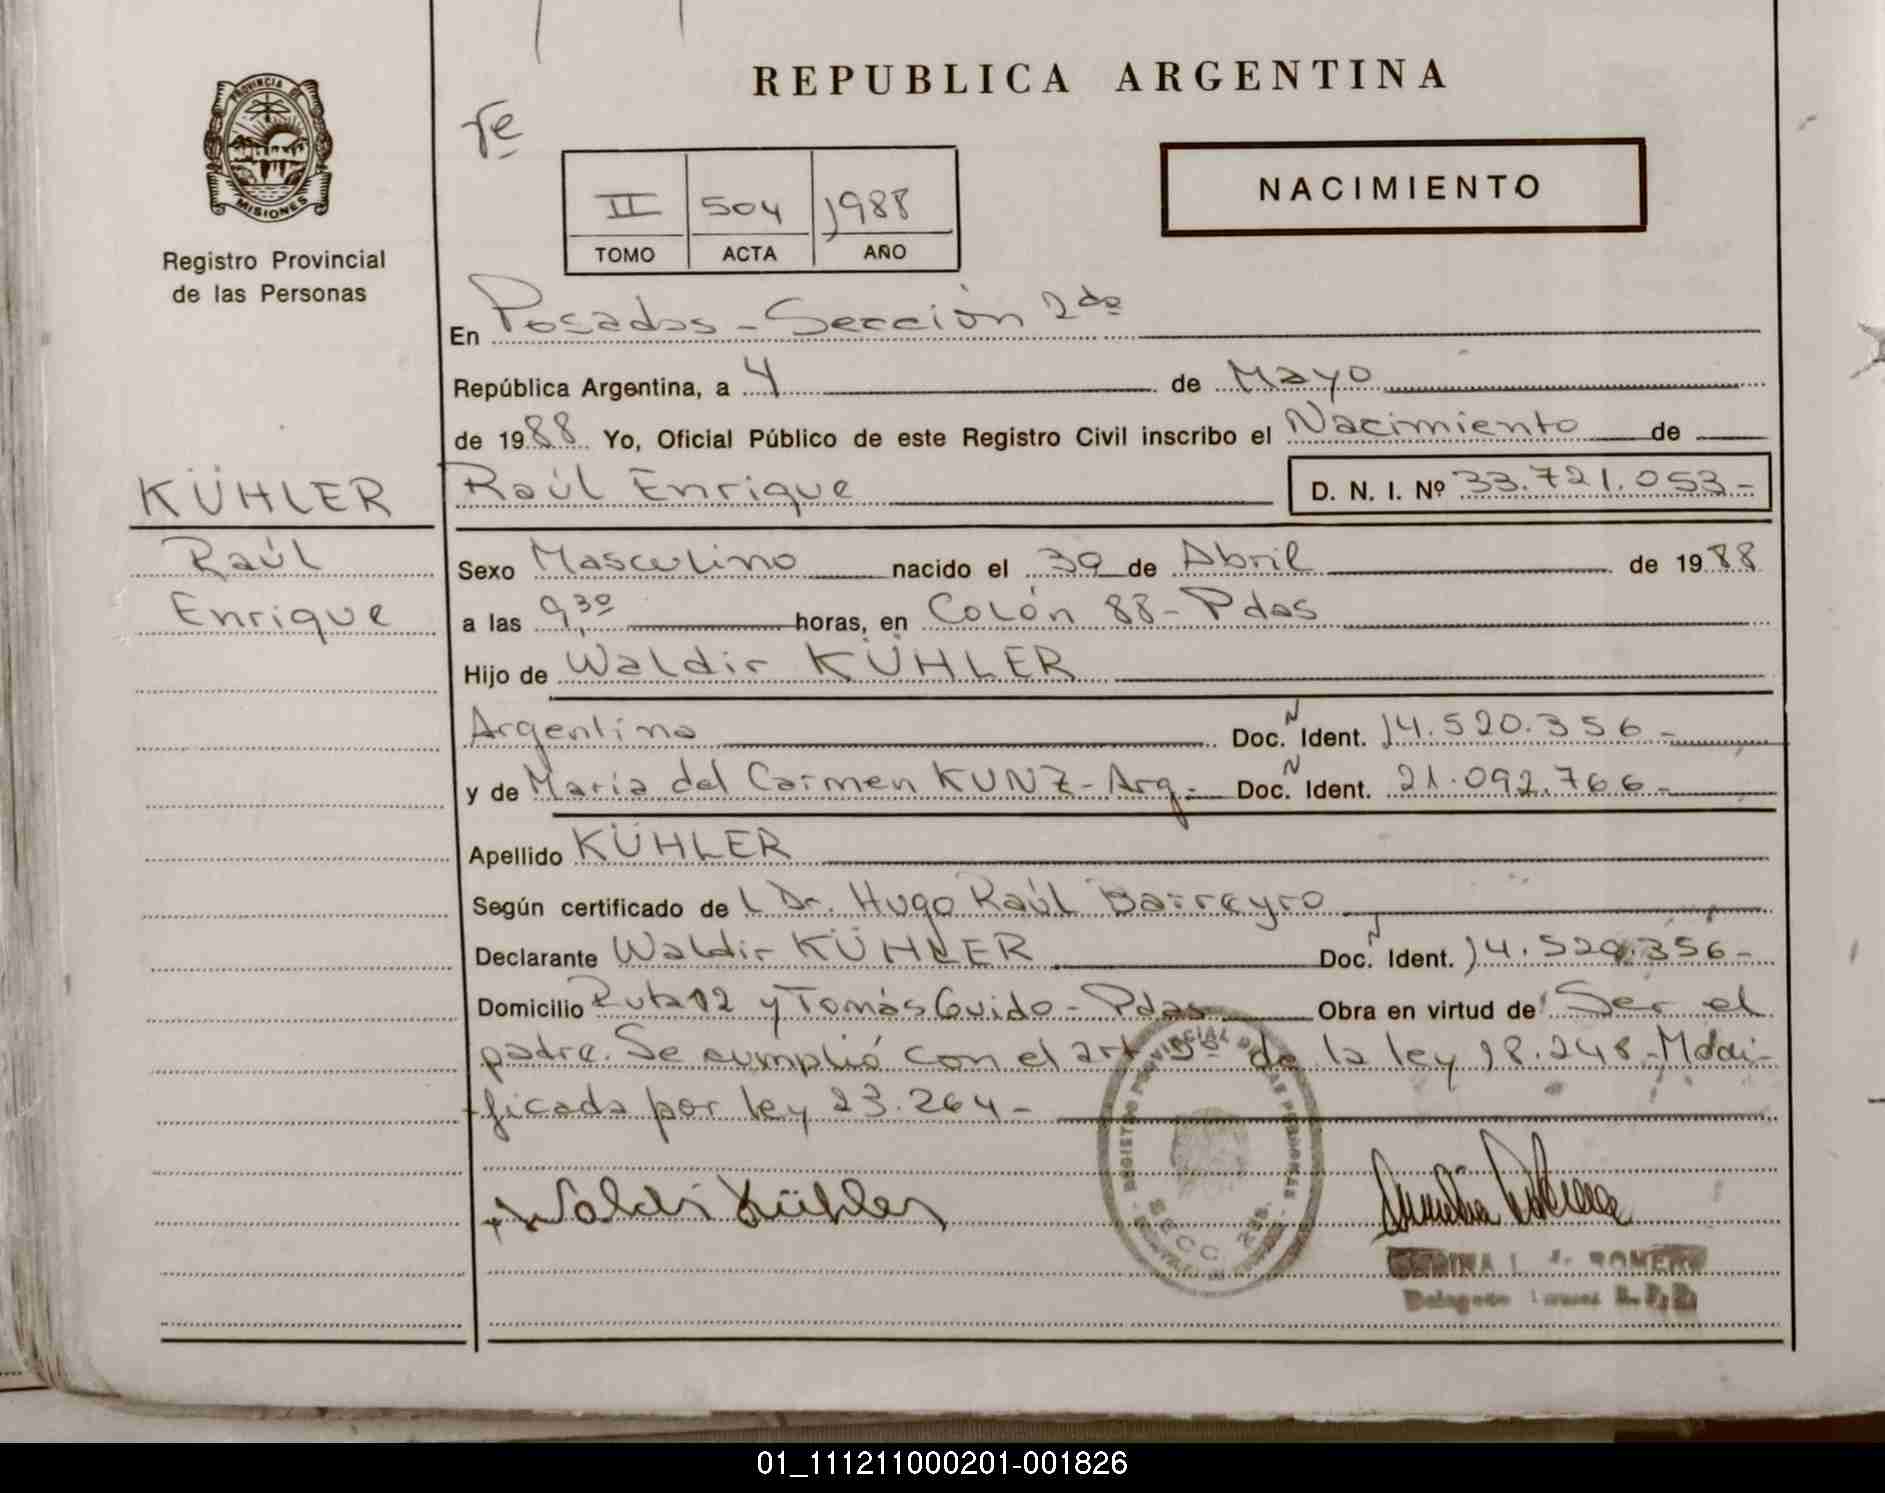 REPUBLICA ARGENTINA
PROVINCIA DE
MISIONES
Registro Provincial
de las Personas
NACIMIENTO
II 504 1988
TOMO ACTA AÑO
En Posadas - Sección 2da
República Argentina, a 4 de Mayo
de 1988 Yo, Oficial Público de este Registro Civil inscribo el Nacimiento de
KÜHLER
Raúl
Enrique
Raúl Enrique D. N. I. Nº 33.721.053-
Sexo Masculino nacido el 30 de Abril de 1988
a las 9,30 horas, en Colón 88 - Pdas
Hijo de Waldir KÜHLER
Argentino Doc. N Ident. 14.520.356-
y de María del Carmen KUNZ - Arg - Doc. N Ident. 21.092.766-
Apellido KÜHLER
Según certificado de L Dr. Hugo Raúl Barreyro
Declarante Waldir KÜHLER Doc. N Ident. 14.520.356-
Domicilio Ruta 12 y Tomás Guido - Pdas Obra en virtud de Ser el
padre. Se cumplió con el art 5º de la ley 18.248 - Modi-
ficada por ley 23.264-
REGISTRO PROVINCIAL DE LAS PERSONAS
SECC.
Waldir Kühler
L. de ROMERO
01_111211000201-001826